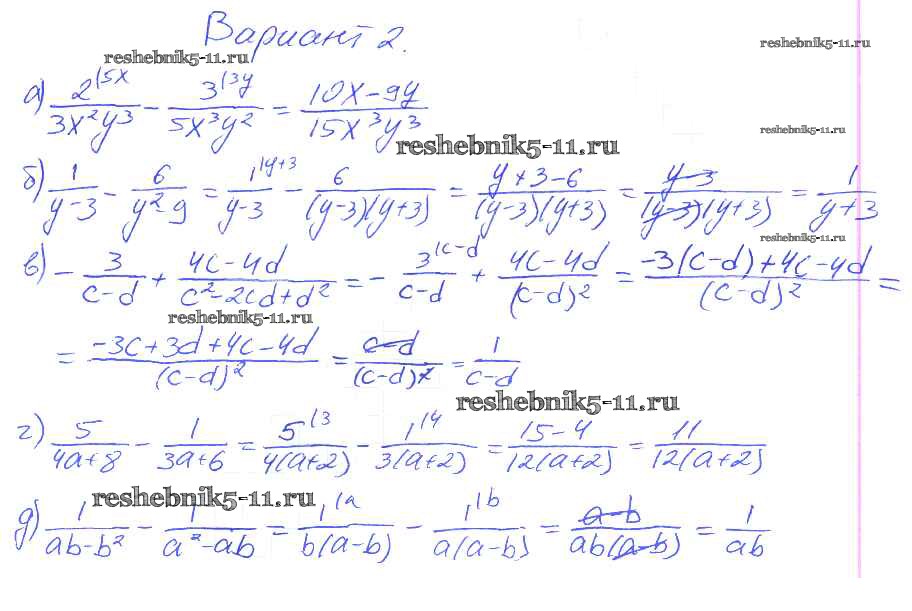 Вариант 2.
reshebnik5-11.ru
reshebnik5-11.ru
а) \frac{2^{(5x}}{3x^2y^3} - \frac{3^{(3y}}{5x^3y^2} = \frac{10x-9y}{15x^3y^3}
reshebnik5-11.ru
reshebnik5-11.ru
б) \frac{1}{y-3} - \frac{6}{y^2-9} = \frac{1^{(y+3}}{y-3} - \frac{6}{(y-3)(y+3)} = \frac{y+3-6}{(y-3)(y+3)} = \frac{y-3}{(y-3)(y+3)} = \frac{1}{y+3}
reshebnik5-11.ru
в) -\frac{3}{c-d} + \frac{4c-4d}{c^2-2cd+d^2} = -\frac{3^{(c-d}}{c-d} + \frac{4c-4d}{(c-d)^2} = \frac{-3(c-d)+4c-4d}{(c-d)^2} =
reshebnik5-11.ru
= \frac{-3c+3d+4c-4d}{(c-d)^2} = \frac{c-d}{(c-d)^2} = \frac{1}{c-d}
reshebnik5-11.ru
г) \frac{5}{4a+8} - \frac{1}{3a+6} = \frac{5^{(3}}{4(a+2)} - \frac{1^{(4}}{3(a+2)} = \frac{15-4}{12(a+2)} = \frac{11}{12(a+2)}
reshebnik5-11.ru
д) \frac{1}{ab-b^2} - \frac{1}{a^2-ab} = \frac{1^{(a}}{b(a-b)} - \frac{1^{(b}}{a(a-b)} = \frac{a-b}{ab(a-b)} = \frac{1}{ab}